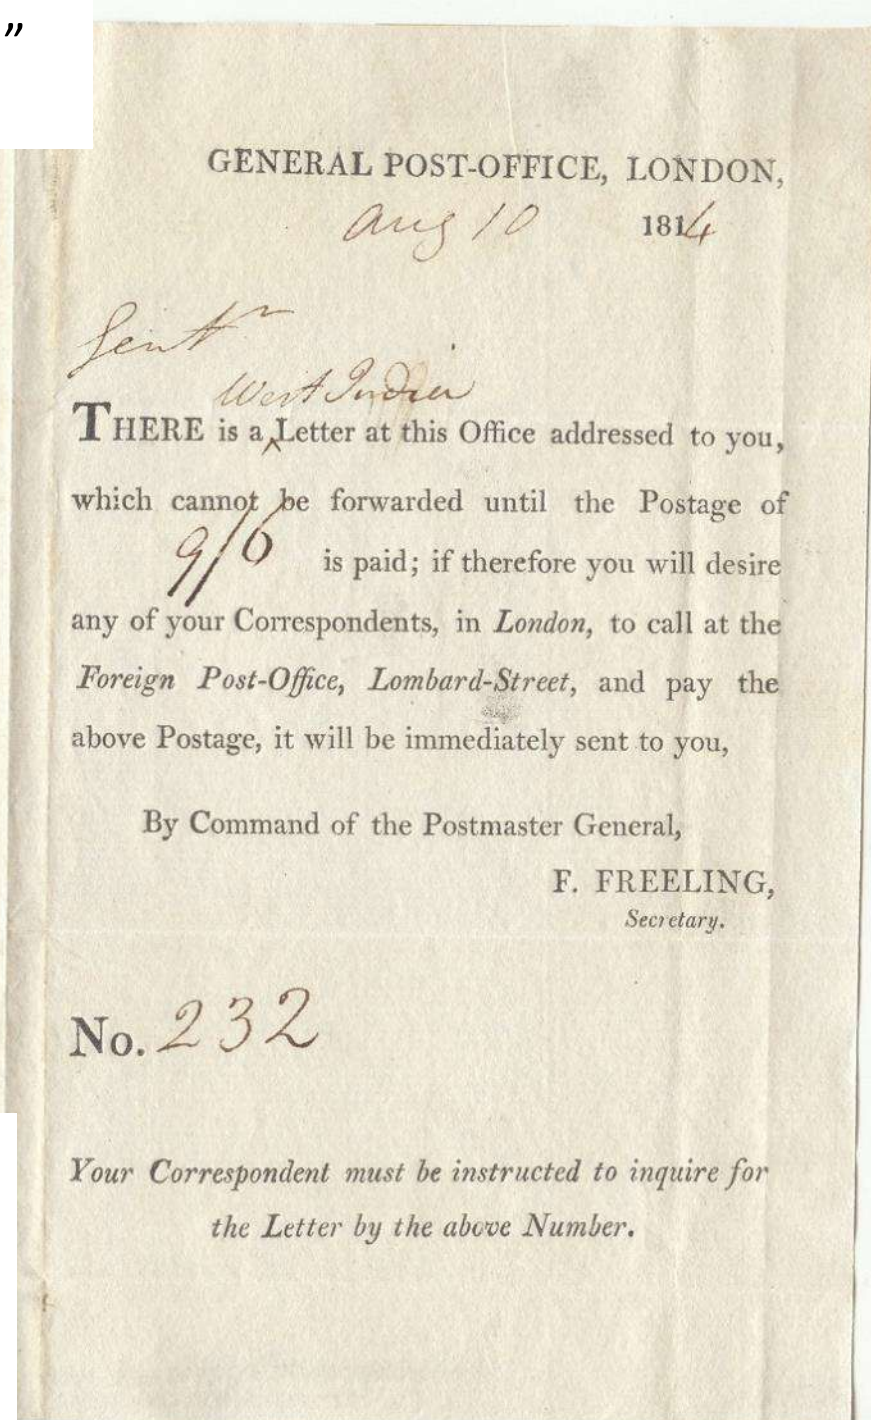 ”
GENERAL POST-OFFICE, LONDON,
Aug 10 1814
Gentn
West India
THERE is a ‸ Letter at this Office addressed to you,
which cannot be forwarded until the Postage of
9/6 is paid; if therefore you will desire
any of your Correspondents, in London, to call at the
Foreign Post-Office, Lombard-Street, and pay the
above Postage, it will be immediately sent to you,
By Command of the Postmaster General,
F. FREELING,
Secretary.
No. 232
Your Correspondent must be instructed to inquire for
the Letter by the above Number.